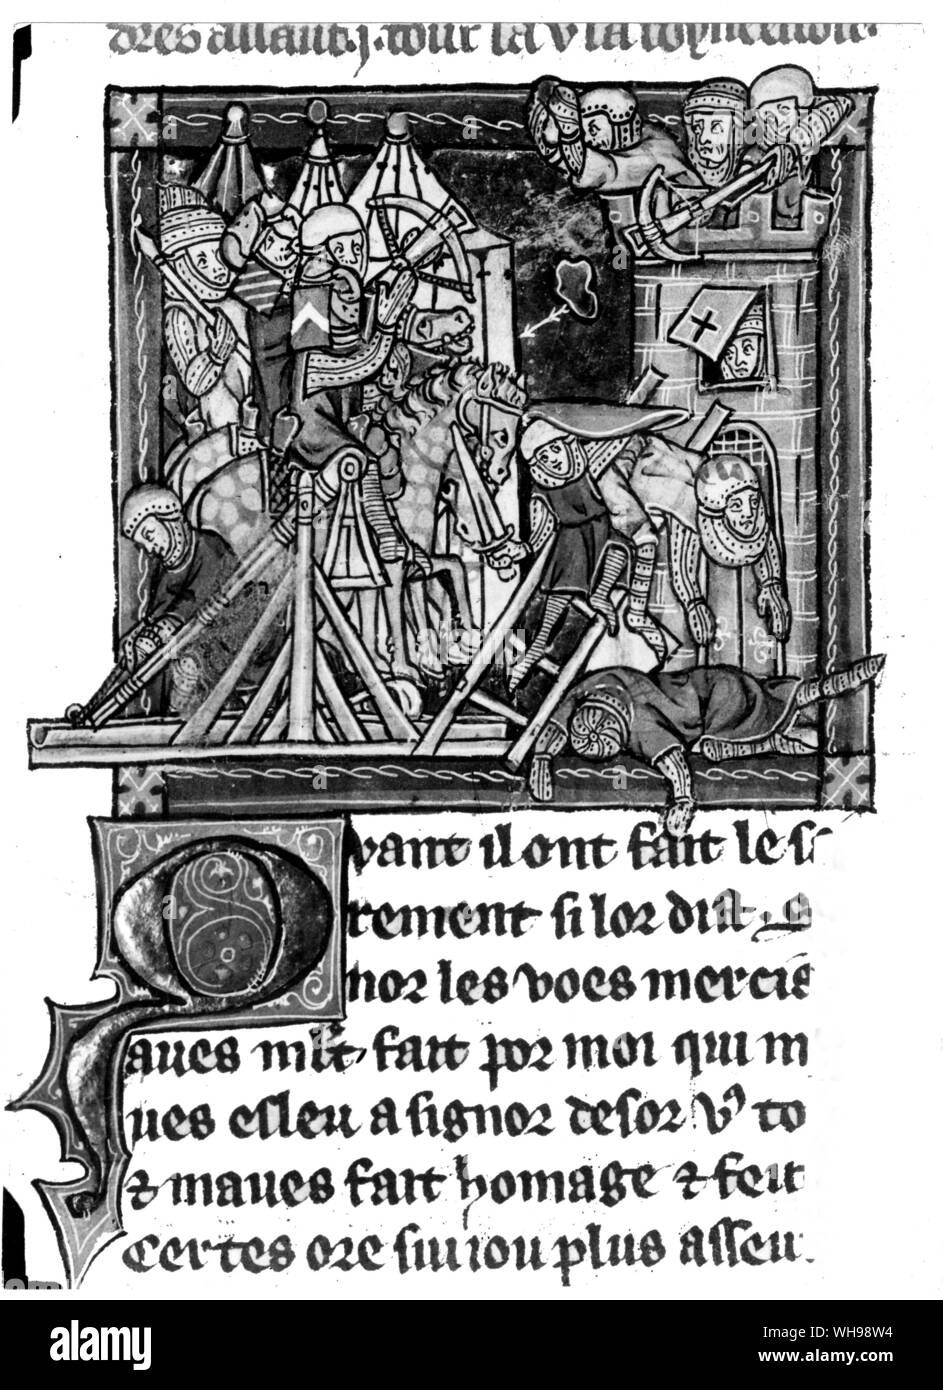 dres allant.j. tour la v
vant il ont fait le s
rement si lor dist. S
nor les voes mercie
aues mlt. fait por moi qui m
ues esleu a signor desor v9 to
⁊ maues fait homage ⁊ feit
Certes ore sui iou plus asseu
alamy
Image ID: WH98W4
www.alamy.com